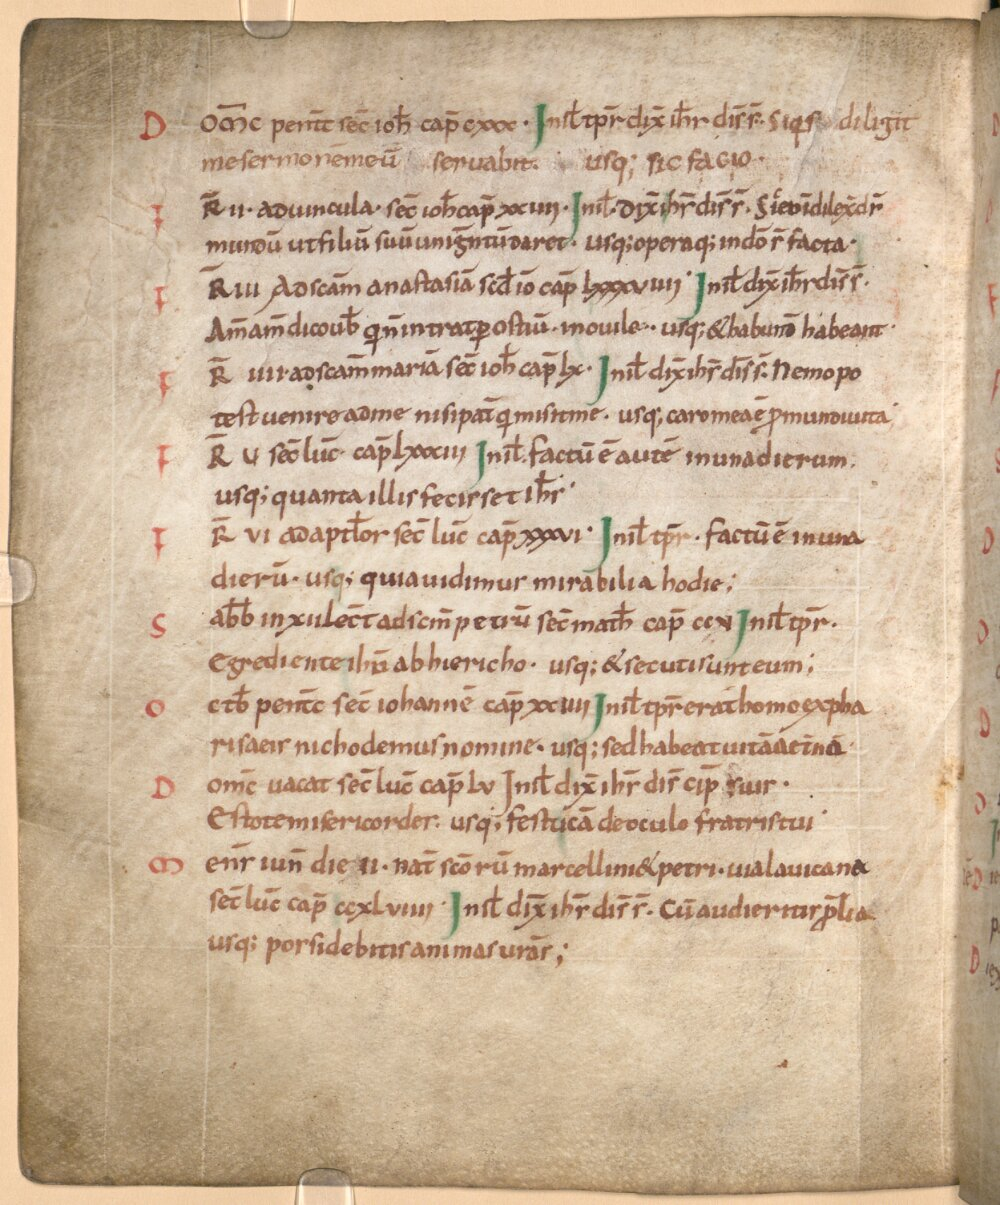 D omc̄ pentc̄ sec̄ ioh̄ cap̄ cxxx · Inil̄ tpr̄ dix̄ ih̄r dis̄ s̄ · Siqs diligit
me sermonem meū servabit · usq; sic facio ·
F R̄ ii · ad vincula · sec̄ ioh̄ cap̄ xxiiii · Inil̄ · dix̄ ih̄r dis̄ s̄ · Sic eni dilex̄ dr̄
mundū ut filiū suū unigntū daret · usq; opera q; in dō r̄ facta ·
F R̄ iii Ad scām anastasiā scd̄ iō cap̄ lxxxviiii · Inil̄ dix̄ ih̄r dis̄ s̄ ·
Am̄ am̄ dico vob̄ qui n̄ intrat p ostiū · in ovile · usq; & habund̄ habeant ·
F R̄ iiii · ad scam mariā sec̄ ioh̄ cap̄ lx · Inil̄ dix̄ ih̄r dis̄ s̄ · Nemo po
test venire ad me nisi pat̄ q̄ misit me · usq; caro mea ē p mundi vita
F R̄ v sec̄ luc̄ cap̄ lxxxiii Inil̄ · factū ē autē in una dierum ·
usq; quanta illis fecisset ih̄r ·
F R̄ vi ad apostl̄or sec̄ luc̄ cap̄ xxxvi · Inil̄ tpr̄ · factū ē in una
dierū · usq; quia vidimus mirabilia hodie ;
S abb̄ in xii lect̄ ad scm̄ petrū sec̄ math̄ cap̄ ccv Inil̄ tpr̄ ·
Egrediente ihū ab hiericho · usq; & secuti sunt eum ;
O ctb̄ pentc̄ sec̄ iohannē cap̄ xxiiii Inil̄ tpr̄ erat homo ex pha
risaeis nichodemus nomine · usq; sed habeat vitā aet̄nā ·
D omc̄ vacat sec̄ luc̄ cap̄ lv Inil̄ dix̄ ih̄r dis̄ cip̄ suis ·
Estote misericordes · usq; festucā de oculo fratris tui
M ens̄ iun̄ die ii · nat̄ scōrū marcellini & petri · via lavicana
sec̄ luc̄ cap̄ ccxlviiii · Inil̄ dix̄ ih̄r dis̄ s̄ · Cū audieritis p̄lia
usq; possidebitis animas vrās ;